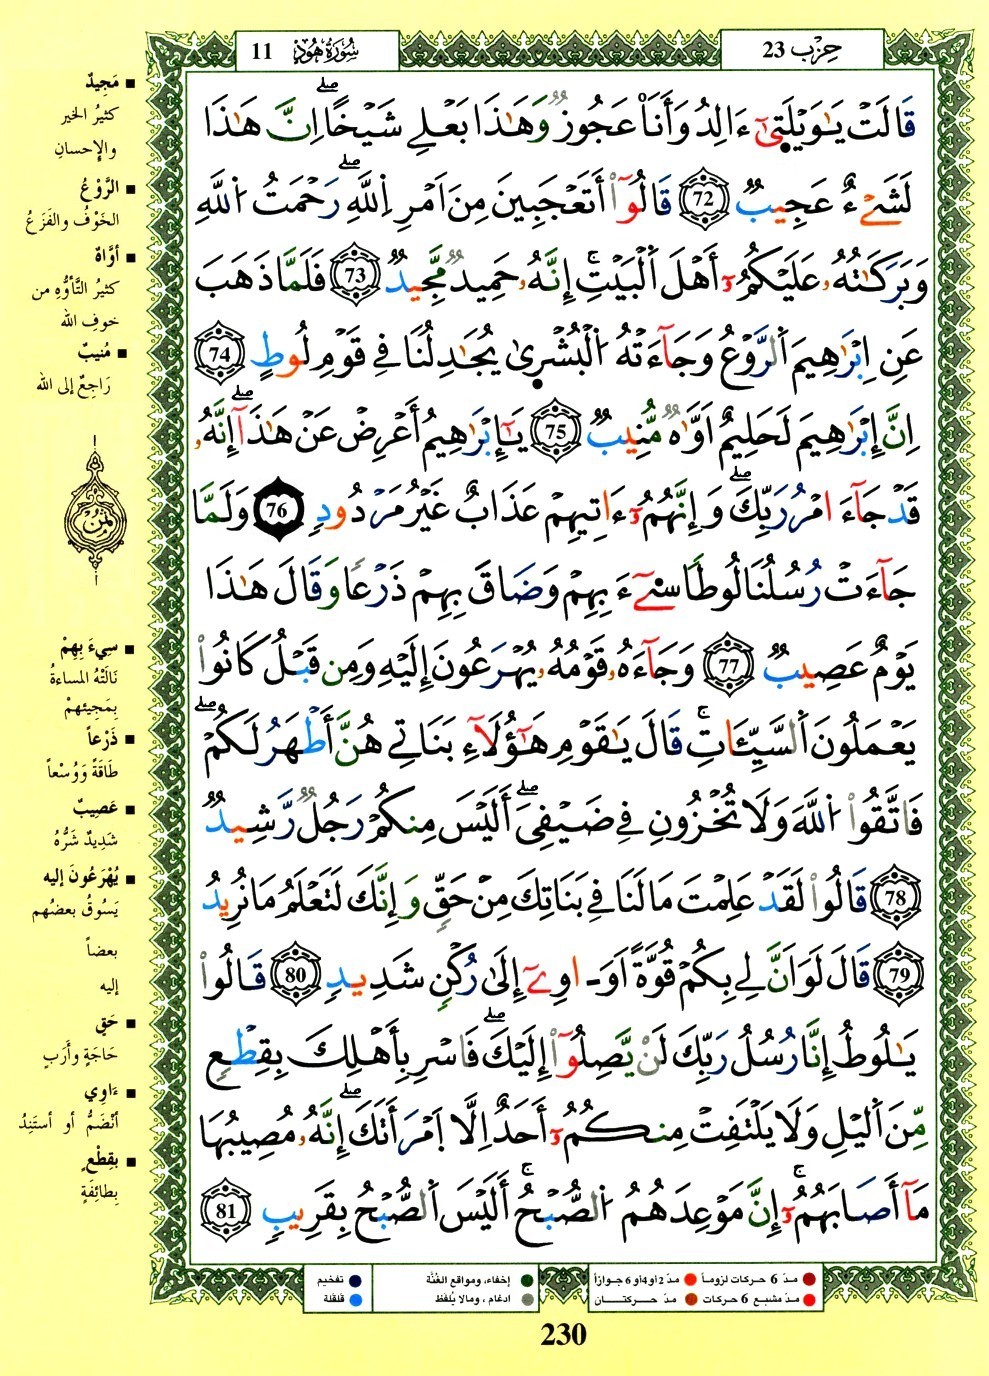 حِزْب 23
سُورَةُ هُودٍ 11
قَالَتْ يَٰوَيْلَتَىٰٓ ءَالِدُ وَأَنَا۠ عَجُوزٞ وَهَٰذَا بَعْلِے شَيْخًاۖ اِنَّ هَٰذَا
لَشَےْءٌ عَجِيبٞ 72 قَالُوٓاْ أَتَعْجَبِينَ مِنَ اَمْرِ اِ۬للَّهِۖ رَحْمَتُ اُ۬للَّهِ
وَبَرَكَٰتُهُۥ عَلَيْكُمُۥٓ أَهْلَ اَ۬لْبَيْتِۚ إِنَّهُۥ حَمِيدٞ مَّجِيدٞ 73 فَلَمَّا ذَهَبَ
عَنِ اِبْرَٰهِيمَ اَ۬لرَّوْعُ وَجَآءَتْهُ اُ۬لْبُشْر۪يٰ يُجَٰدِلُنَا فِے قَوْمِ لُوطٍ 74
اِنَّ إِبْرَٰهِيمَ لَحَلِيمٌ اَوَّٰهٞ مُّنِيبٞ 75 يَٰٓإِبْرَٰهِيمُ أَعْرِضْ عَنْ هَٰذَآۖ إِنَّهُۥ
قَدْ جَآءَ امْرُ رَبِّكَۖ وَإِنَّهُمُۥٓ ءَاتِيهِمْ عَذَابٌ غَيْرُ مَرْدُودٖ 76 وَلَمَّا
جَآءَتْ رُسُلُنَا لُوطٗا سِےٓءَ بِهِمْ وَضَاقَ بِهِمْ ذَرْعٗا وَقَالَ هَٰذَا
يَوْمٌ عَصِيبٞ 77 وَجَآءَهُۥ قَوْمُهُۥ يُهْرَعُونَ إِلَيْهِ وَمِن قَبْلُ كَانُواْ
يَعْمَلُونَ اَ۬لسَّيِّـَٔاتِۚ قَالَ يَٰقَوْمِ هَٰٓؤُلَآءِ بَنَاتِے هُنَّ أَطْهَرُ لَكُمْۖ
فَاتَّقُواْ اُ۬للَّهَ وَلَا تُخْزُونِ فِے ضَيْفِيَۖ أَلَيْسَ مِنكُمْ رَجُلٞ رَّشِيدٞ
78 قَالُواْ لَقَدْ عَلِمْتَ مَا لَنَا فِے بَنَاتِكَ مِنْ حَقّٖ وَإِنَّكَ لَتَعْلَمُ مَا نُرِيدُ
79 قَالَ لَوَ اَنَّ لِے بِكُمْ قُوَّةً اَوَ ـ اوِےٓ إِلَىٰ رُكْنٖ شَدِيدٖ 80 قَالُواْ
يَٰلُوطُ إِنَّا رُسُلُ رَبِّكَ لَنْ يَّصِلُوٓاْ إِلَيْكَۖ فَاسْرِ بِأَهْلِكَ بِقِطْعٖ
مِّنَ اَ۬ليْلِ وَلَا يَلْتَفِتْ مِنكُمُۥٓ أَحَدٌ اِلَّا اَ۪مْرَأَتَكَۖ إِنَّهُۥ مُصِيبُهَا
مَآ أَصَابَهُمُۥٓۚ إِنَّ مَوْعِدَهُمُ اُ۬لصُّبْحُۚ أَلَيْسَ اَ۬لصُّبْحُ بِقَرِيبٖ 81
■ مَجِيدٌ
كثيرُ الخير
والإحسانِ
■ الرَّوْعُ
الخَوْفُ والفَزَعُ
■ أوَّاهٌ
كثيرُ التَّأوُّهِ من
خوفِ الله
■ مُنيبٌ
رَاجِعٌ إلى الله
ثمن
■ سِيءَ بِهِمْ
نَالَتْهُ المساءةُ
بِمَجِيئهمْ
■ ذَرْعاً
طَاقَةً وَوُسْعاً
■ عَصِيبٌ
شَدِيدٌ شَرُّهُ
■ يُهْرَعُونَ إليه
يَسوقُ بعضُهم
بعضاً
إليه
■ حَقٍ
حَاجَةٍ وأَرَبٍ
■ ءَاوِي
أَنْضَمُّ أو أستَنِدُ
■ بقِطْعٍ
بِطائِفَةٍ
مدّ 6 حركات لزوماً ● مدّ 2 أو 4 أو 6 جوازاً
مدّ مشبع 6 حركات ● مدّ حركتــان
إخفاء، ومواقع الغُنَّة
ادغام ، ومالا يُلفَظ
تفخيم
قلقلة
230